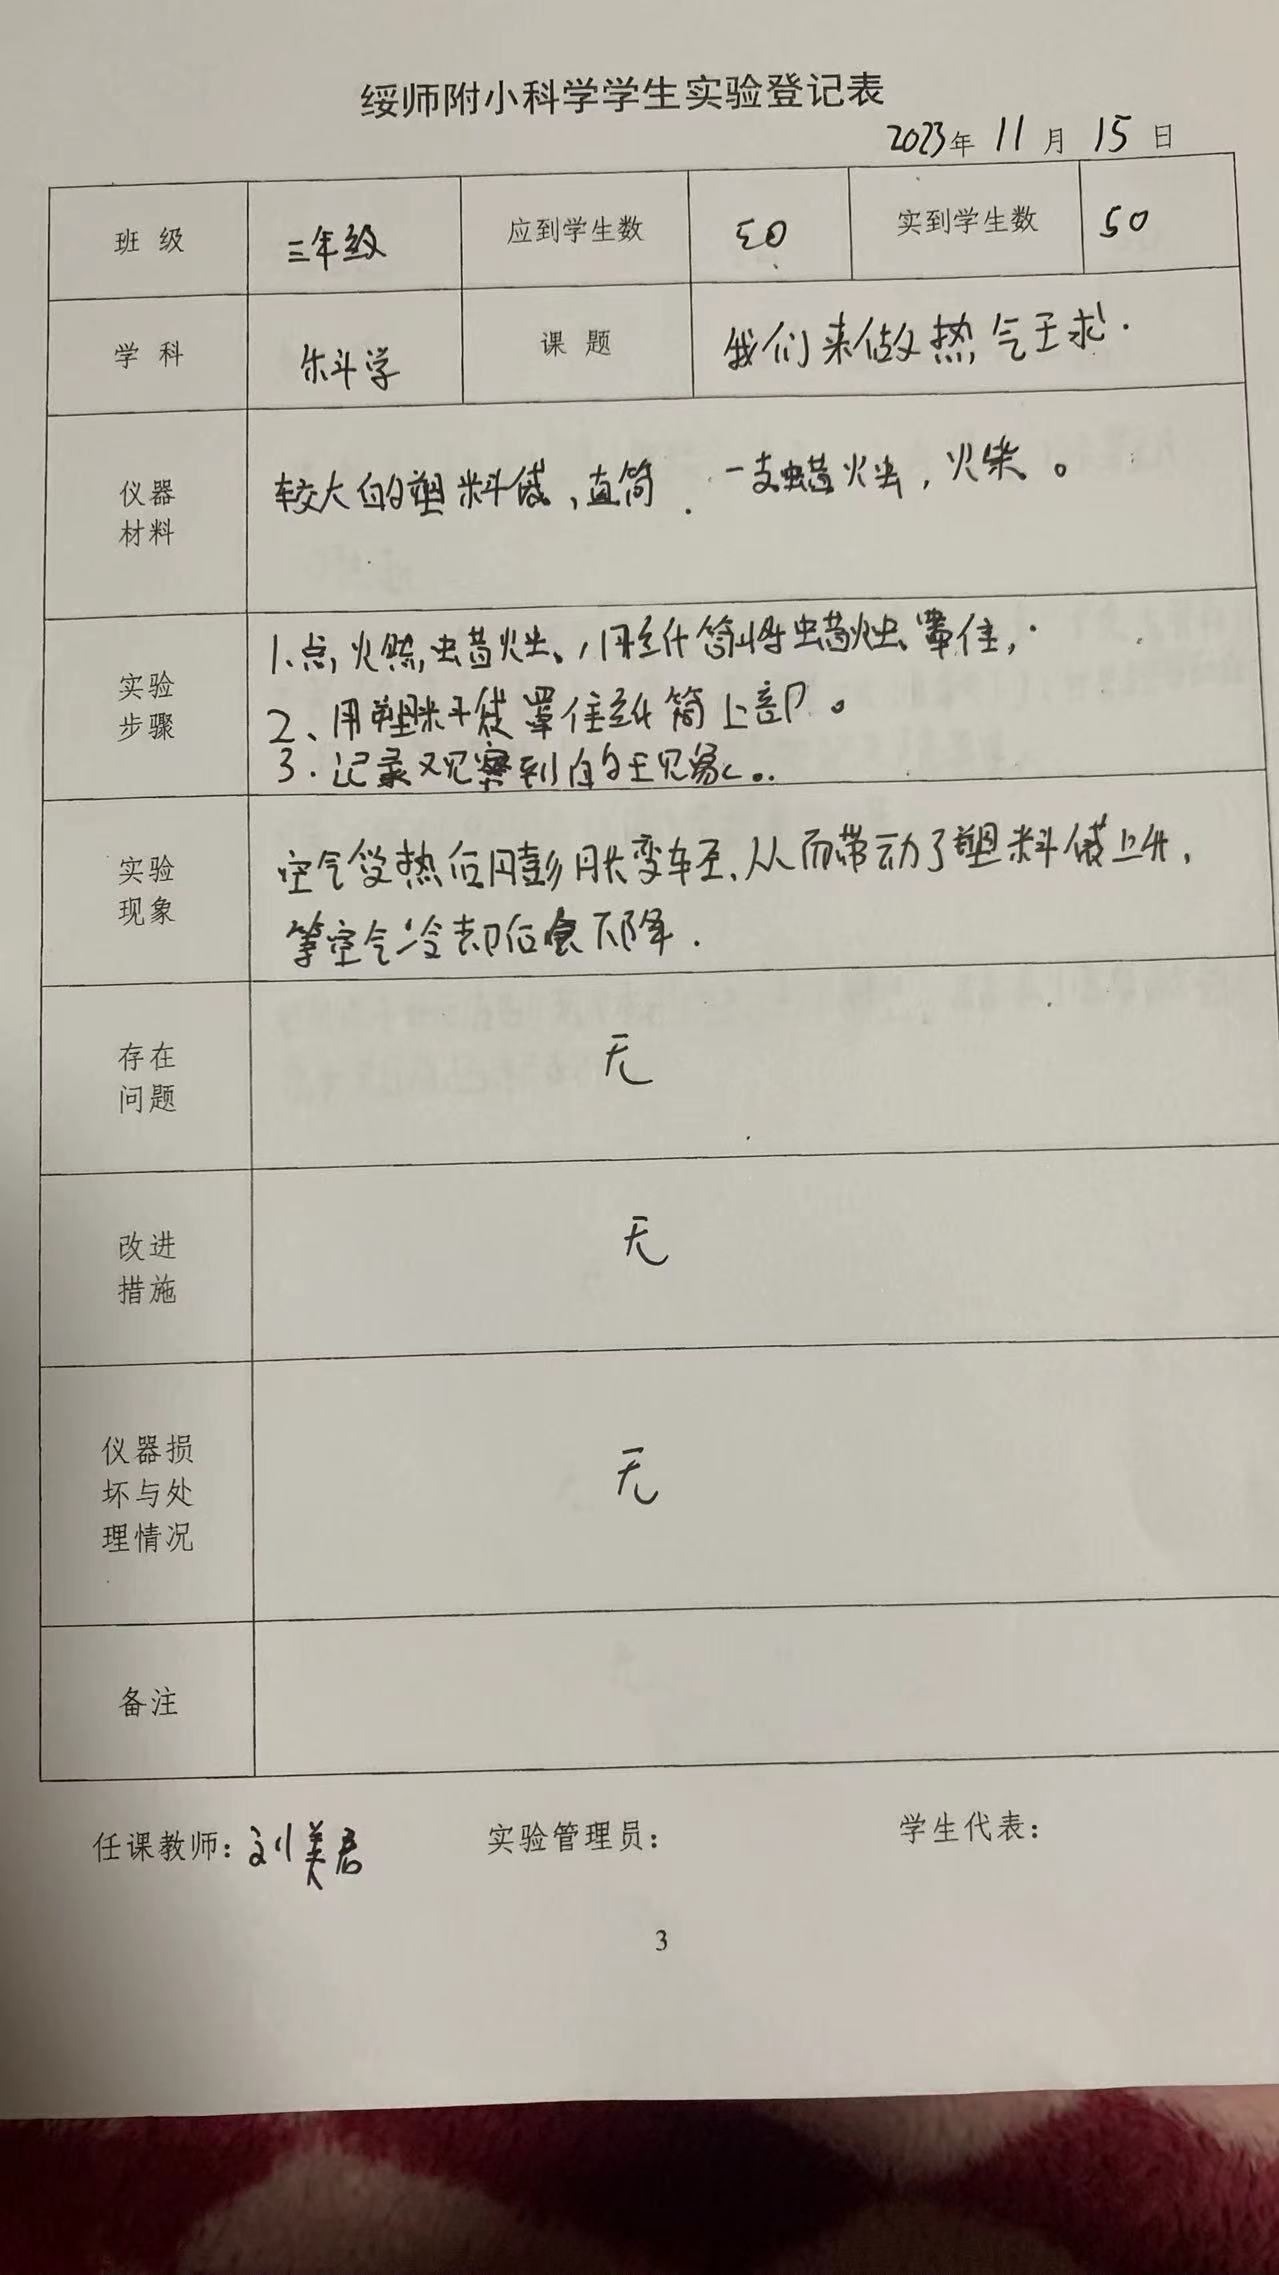 绥师附小科学学生实验登记表
2023年 11 月 15 日
班 级 三年级 应到学生数 50 实到学生数 50
学 科 科学 课 题 我们来做热气球.
仪器
材料
较大的塑料袋、直筒、一支蜡烛，火柴。
实验
步骤
1、点火然蜡烛、用纸筒将蜡烛罩住，
2、用塑料袋罩住纸筒上部。
3.记录观察到的现象。
实验
现象
空气受热后膨胀变轻、从而带动了塑料袋上升，
等空气冷却后会下降.
存在
问题
无
改进
措施
无
仪器损
坏与处
理情况
无
备注
任课教师：刘美君 实验管理员： 学生代表：
3